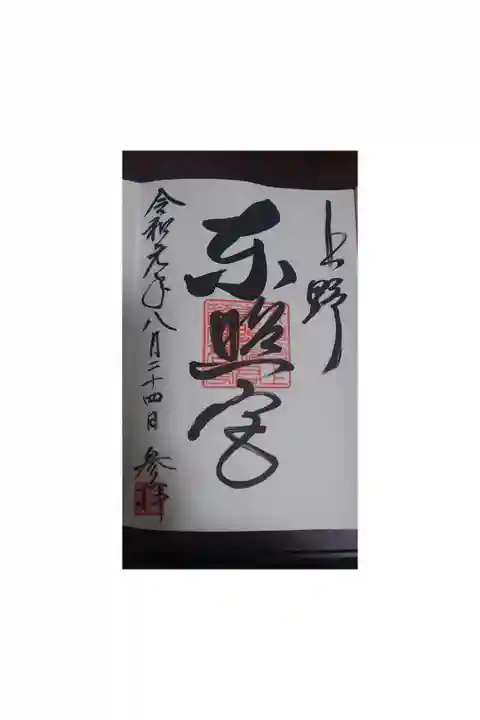 上野
東照宮
令和元年八月二十四日 参拝